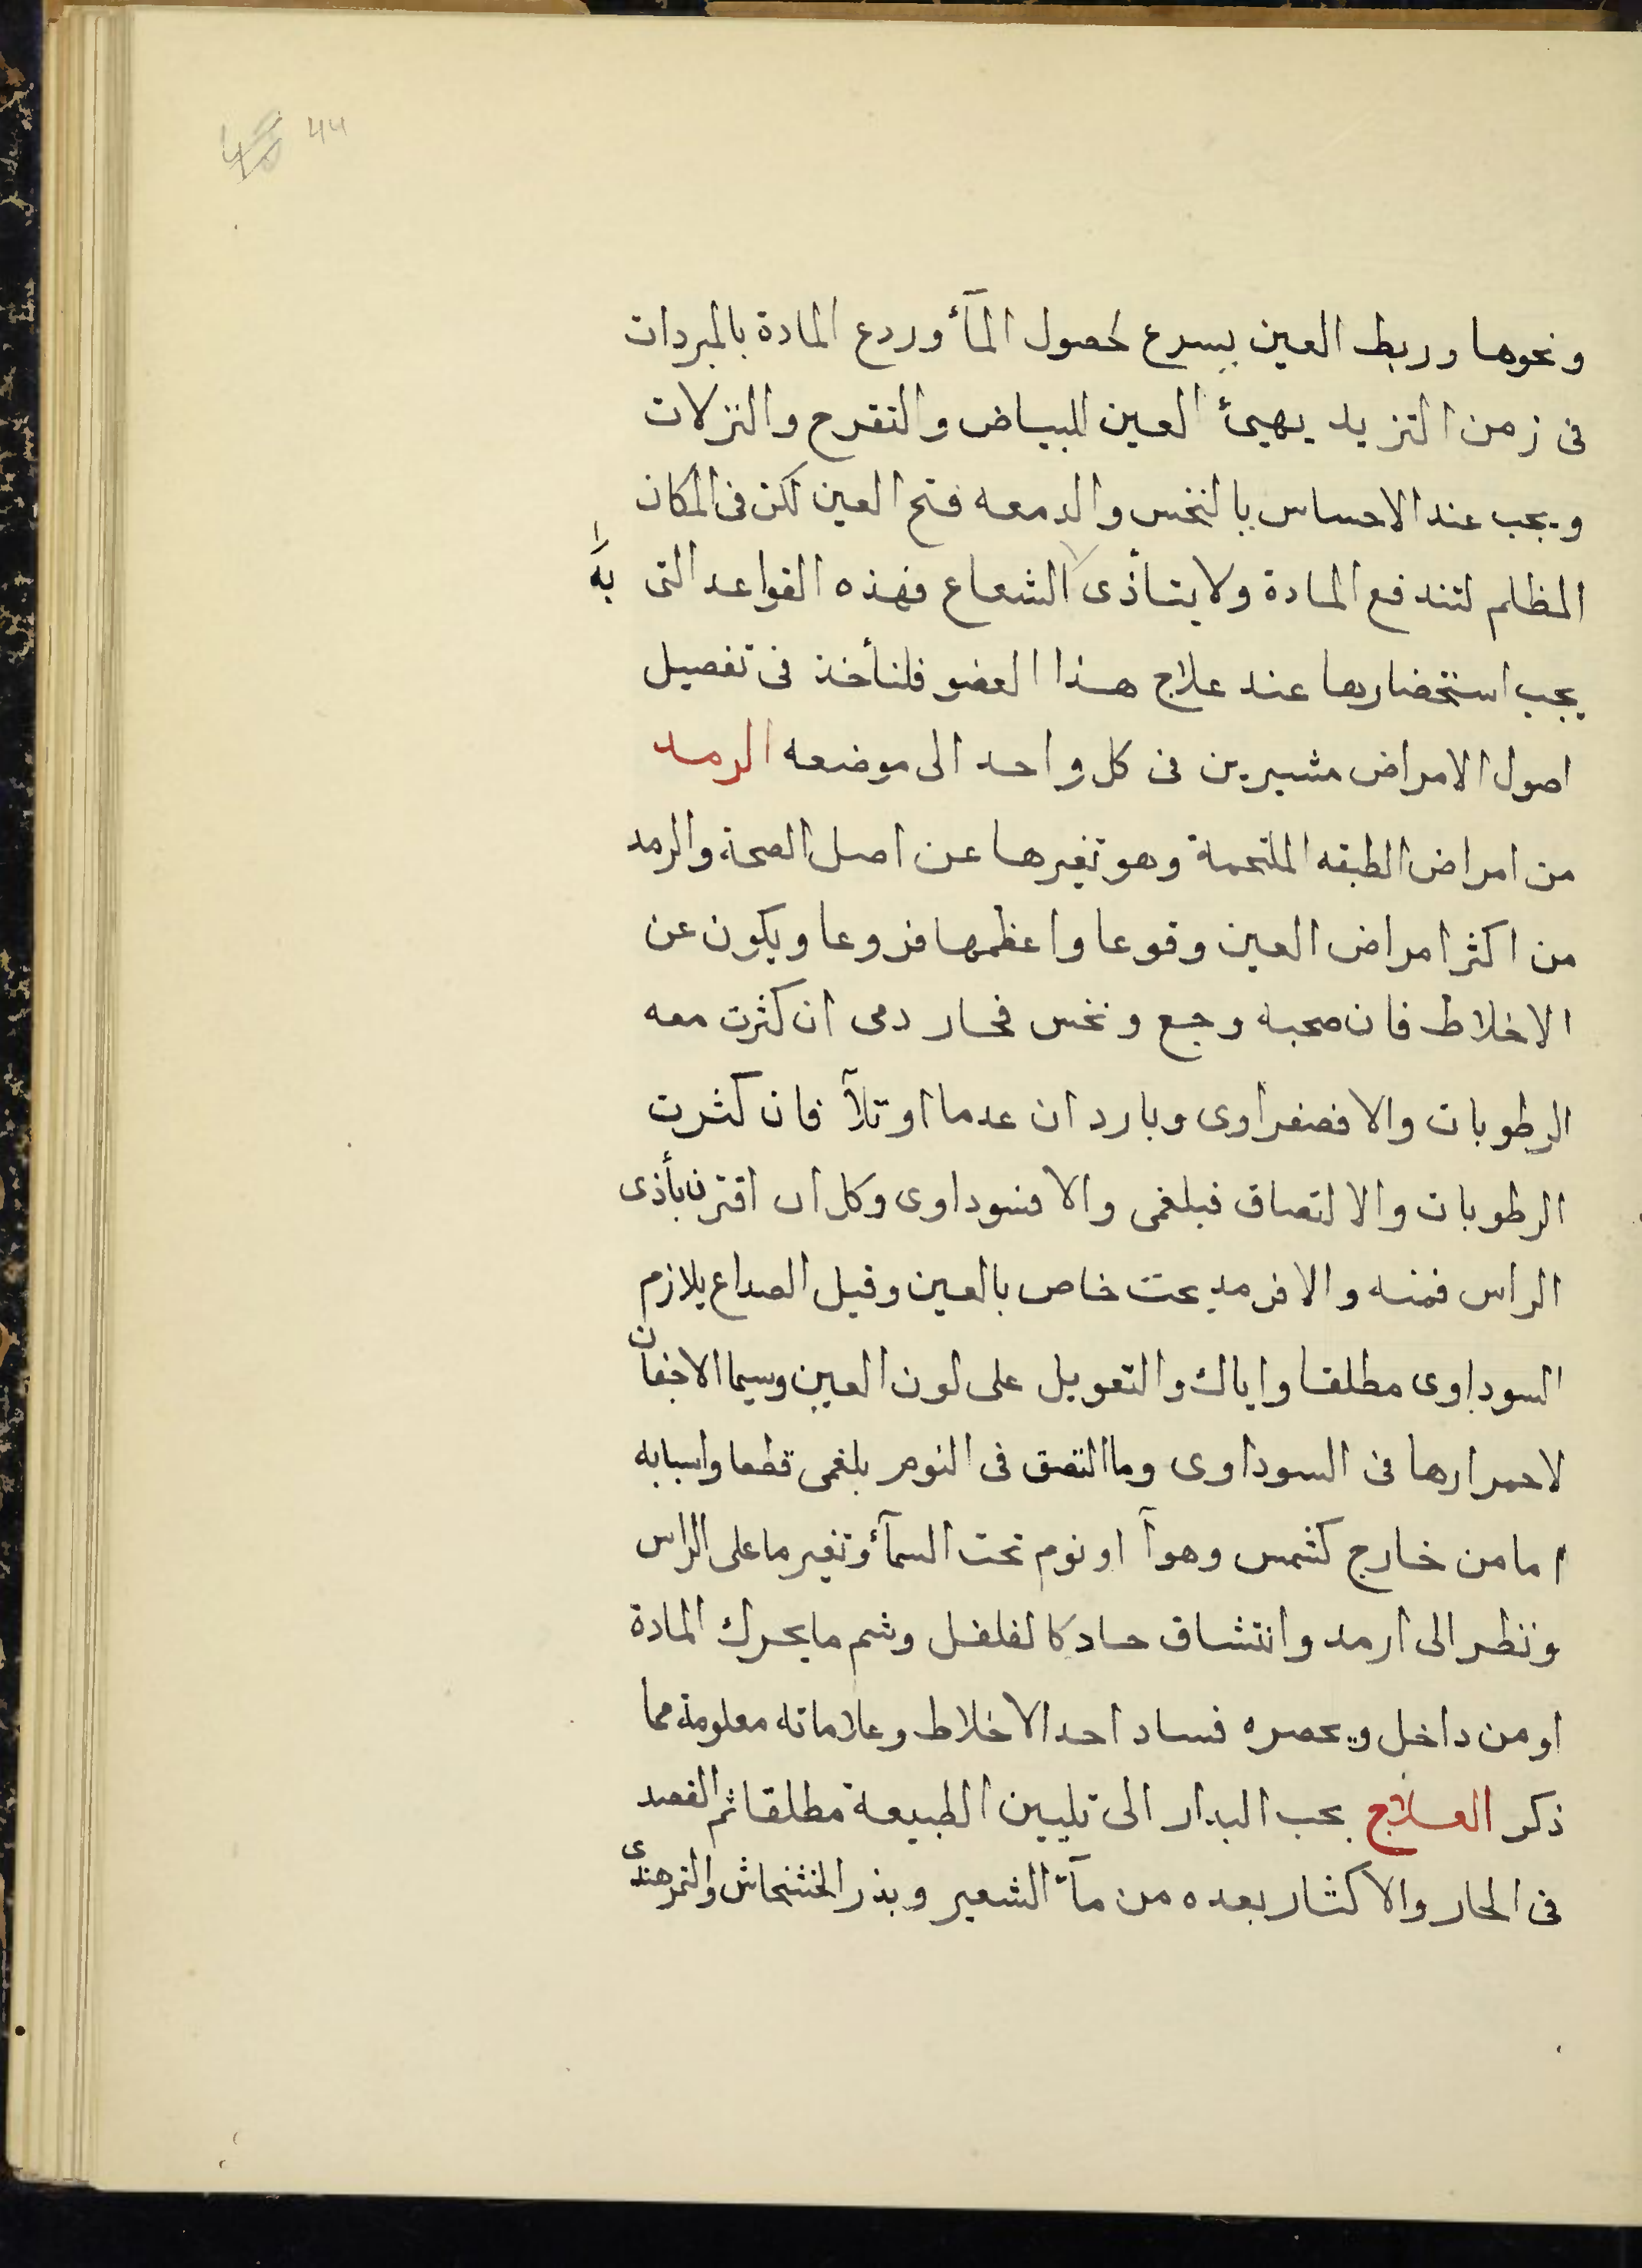 44
ونحوها وربط العين يسرع لحصول المآء وردع المادة بالمبردات
فى زمن التزيد يهيئ العين للبياض والتقرح والنزلات
ويجب عند الاحساس بالنخس والدمعه فتح العين لكن فى المكان
المظلم لتندفع المادة ولا يتأذى الشعاع فهذه القواعد التى
به
يجب استحضارها عند علاج هذا العضو فلنأخذ فى تفصيل
اصول الامراض مشيرين فى كل واحد الى موضعه الرمد
من امراض الطبقه الملتحمة وهو تغيرها عن اصل الصحة والرمد
من اكثر امراض العين وقوعا واعظمها فروعا ويكون عن
الاخلاط فان صحبه وجع ونخس فحار دمى ان كثرت معه
الرطوبات والا فصفراوى وبارد ان عدما او قلآ فان كثرت
الرطوبات والالتصاق فبلغمى والا فسوداوى وكل ان اقترن بأذى
الراس فمنه والا فرمد بحت خاص بالعين وقيل الصداع يلازم
السوداوى مطلقا واياك والتعويل على لون العين وسيما الاجفان
لاحمرارها فى السوداوى وما التصق فى النوم بلغمى قطعا واسبابه
اما من خارج كشمس وهوآ او نوم تحت السمآء وتغير ما على الراس
ونظر الى ارمد وانتشاق حاد كالفلفل وشم ما يحرك المادة
او من داخل ويحصره فساد احد الاخلاط وعلاماته معلومة مما
ذكر العلاج يجب البدار الى تليين الطبيعة مطلقا ثم الفصد
فى الحار والاكثار بعده من مآء الشعير وبذر الخشخاش والتمر هندى